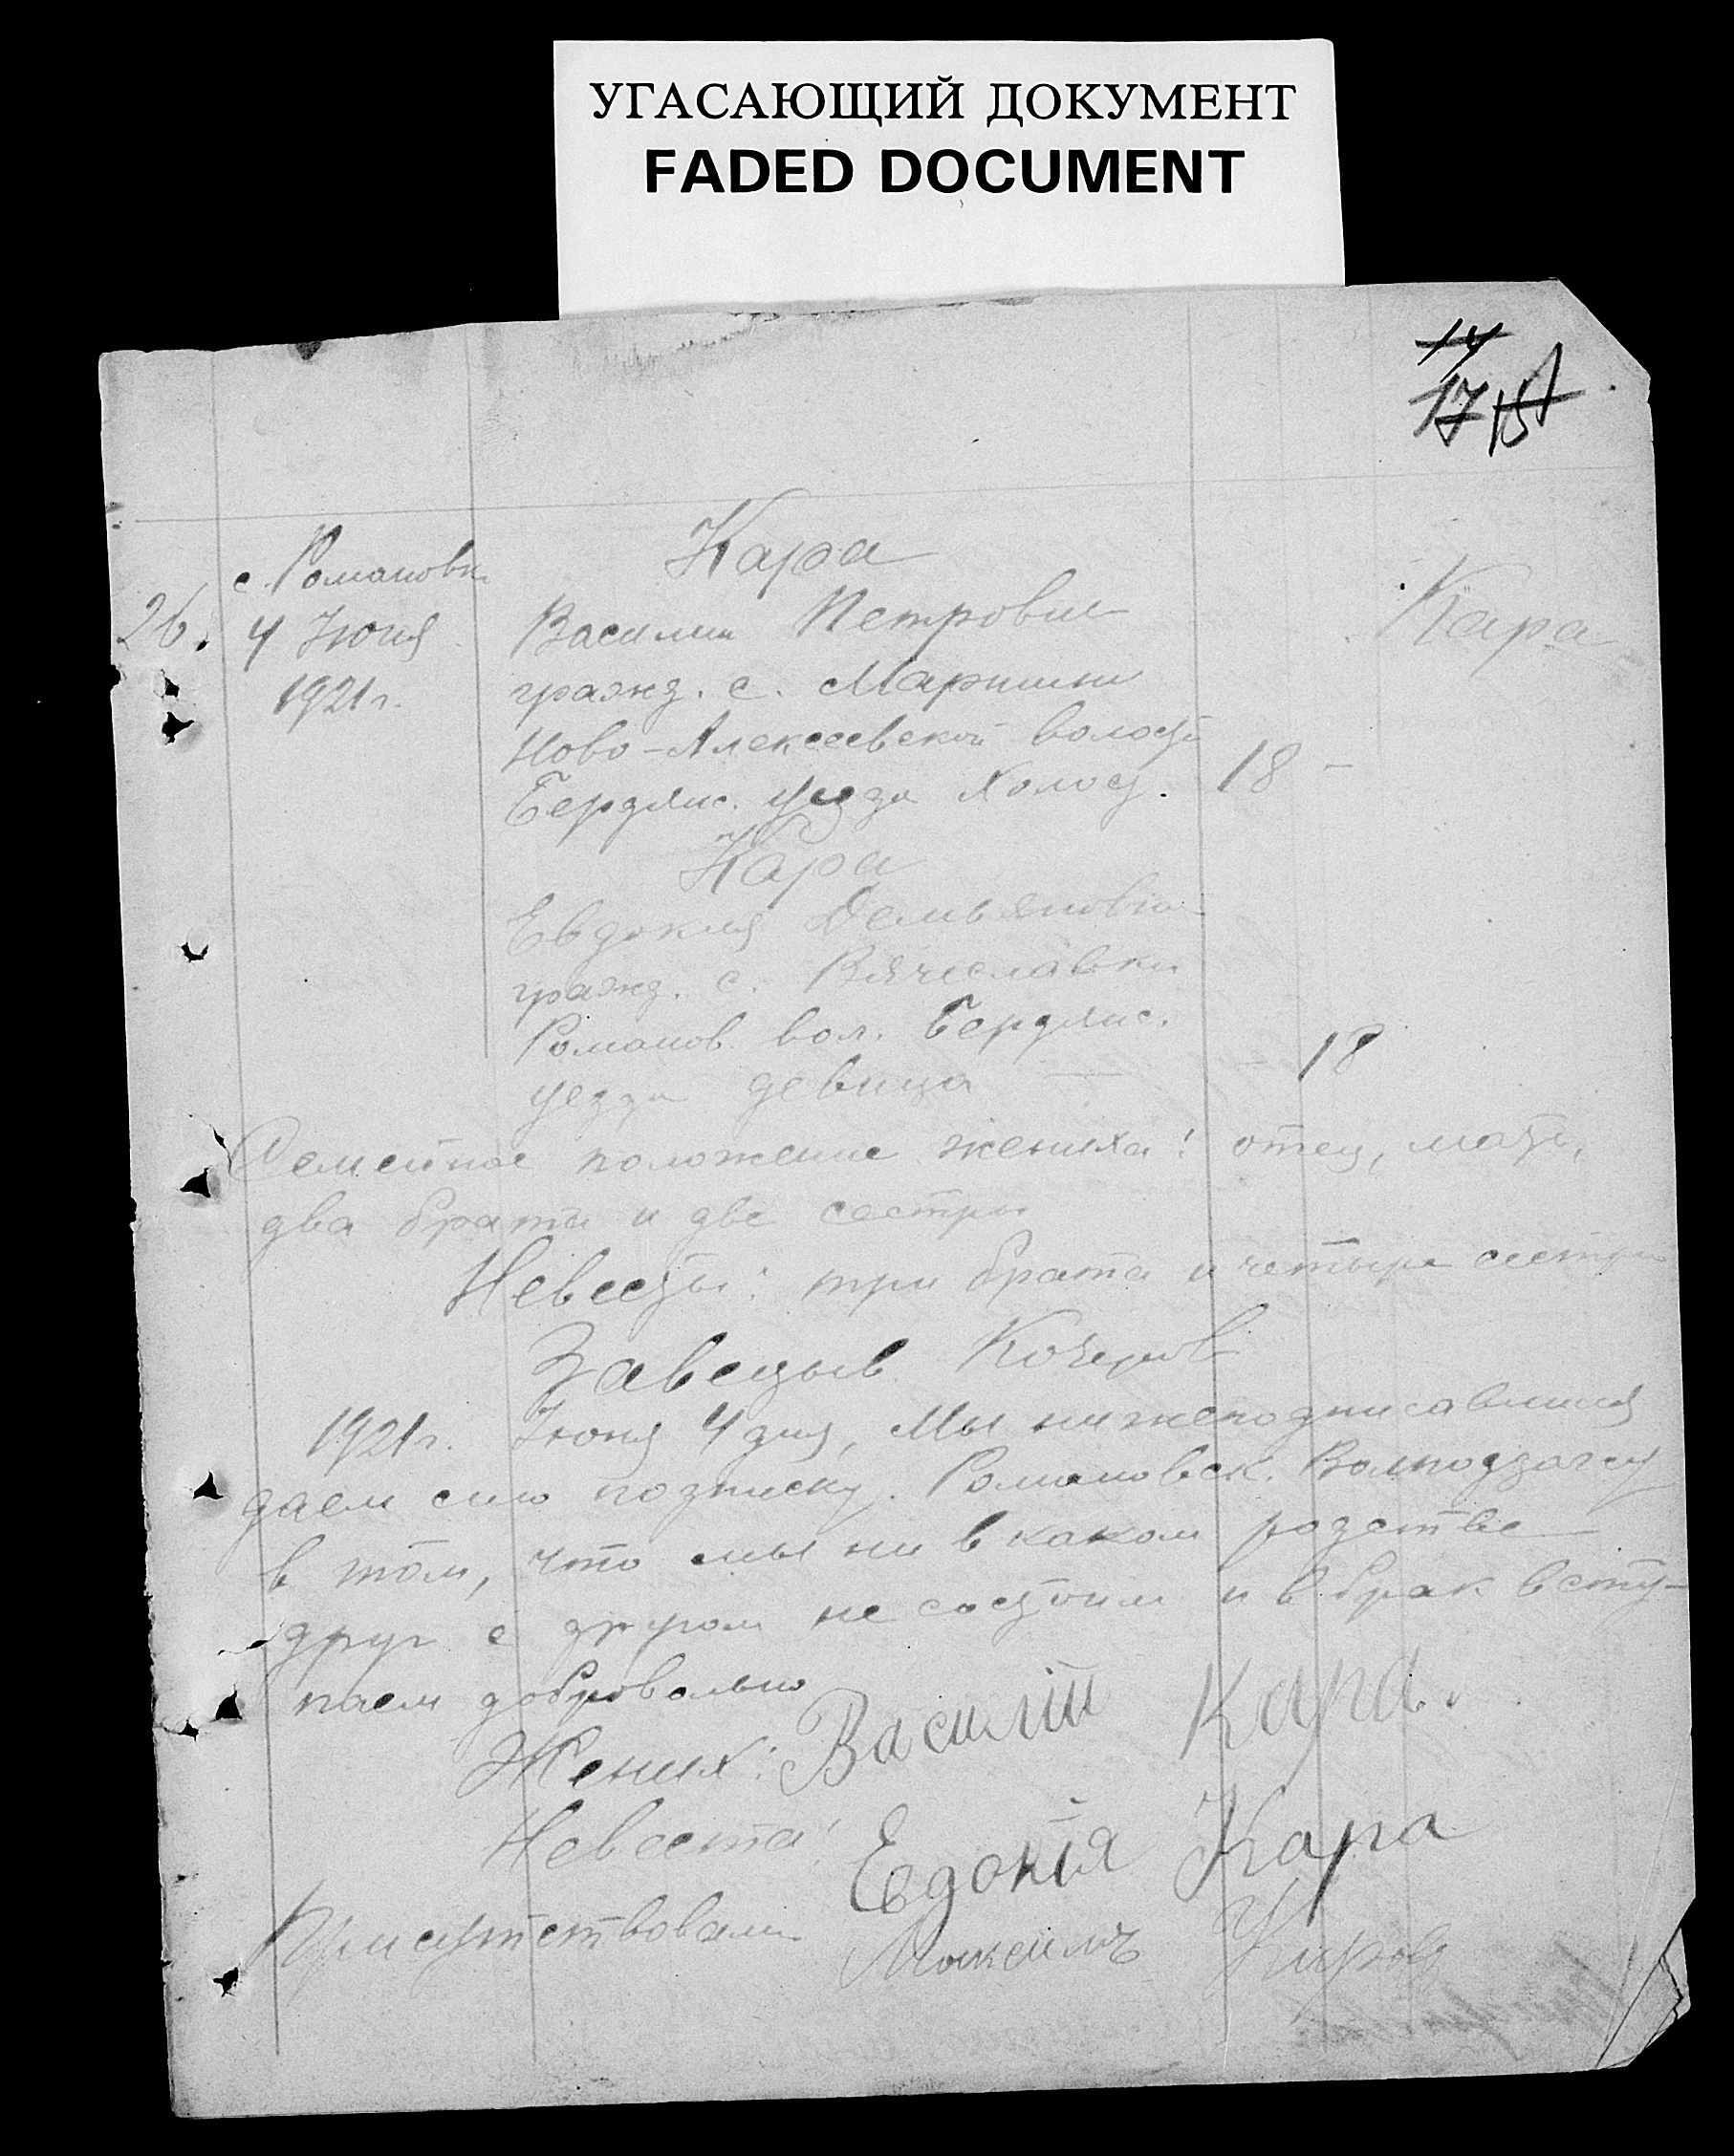 УГАСАЮЩИЙ ДОКУМЕНТ
FADED DOCUMENT
14
17
с. Романовка
26. 4 Июня
1921 г.
Кара
Василий Петрович
гражд. с. Мариини
Ново-Алексеевской волости
Бердянс. уезда холост. 18 —
Кара
Кара
Евдокия Демьяновна
гражд. с. Вячеславки
Романов. вол. Бердянс.
уезда девица — 18
Семейное положение жениха: отец, мать,
два брата и две сестры
Невесты: три брата и четыре сестры
Заведыв.
1921 г. Июня 4 дня, Мы нижеподписавшиеся
даем сию подписку Романовск. Волподзагсу
в том, что мы ни в каком родстве
друг с другом не состоим и в брак всту-
паем добровольно
Жених: Василий Кара.
Невеста: Евдокія Кара
Присутствовали Максимъ